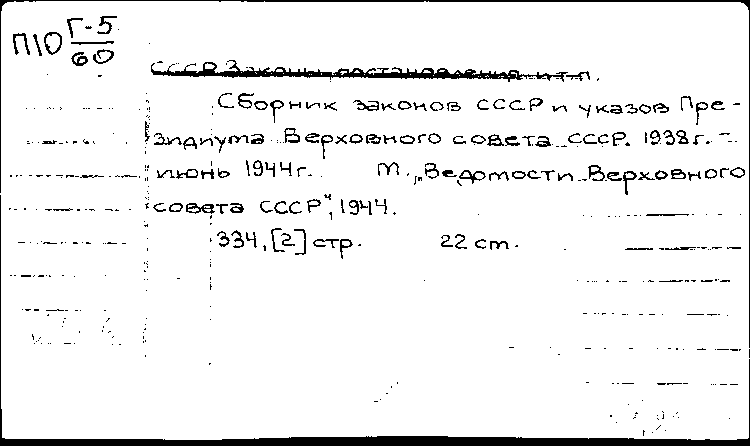 П10 Г-5/60
СССР Законы, постановления и т.п.
Сборник законов СССР и указов Пре-
зидиума Верховного совета СССР. 1938г. -
июнь 1944г. М., „Ведомости Верховного
совета СССР", 1944.
334, [2] стр. 22 cm.